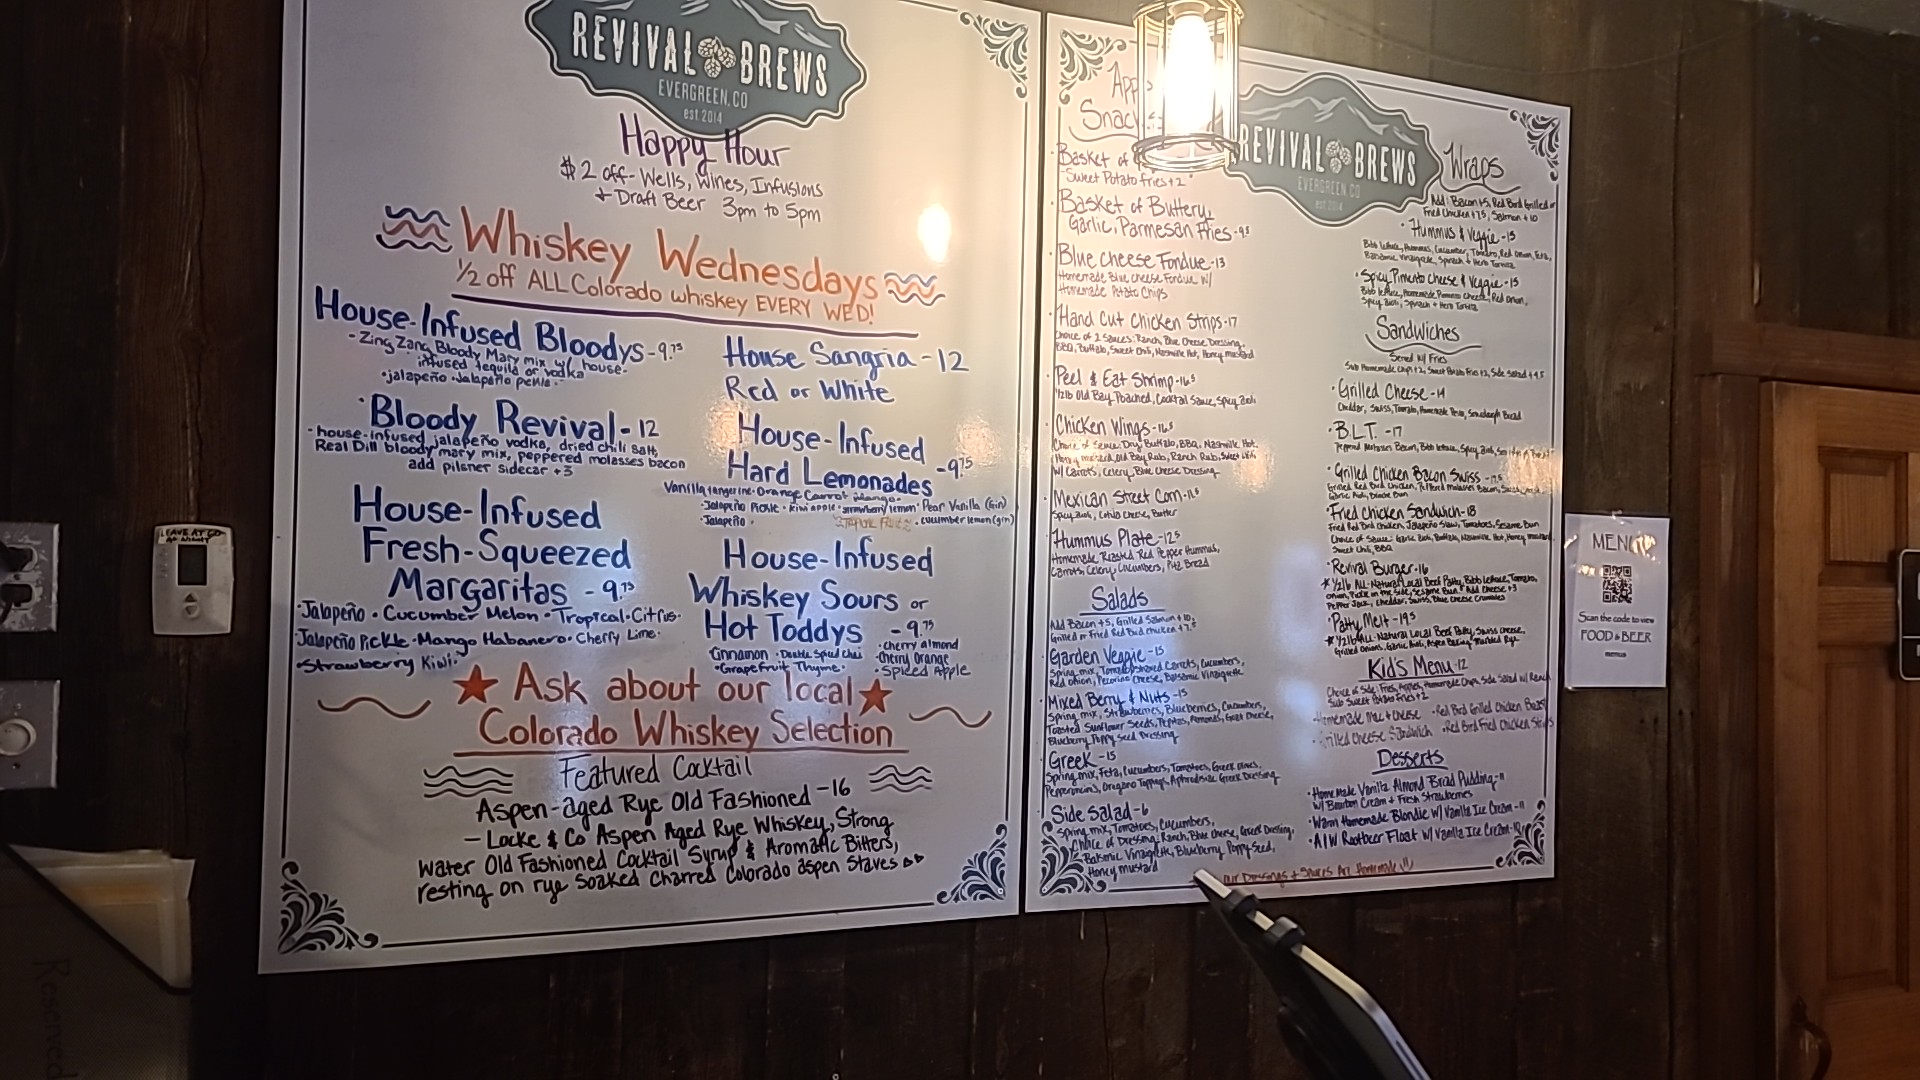 REVIVAL BREWS
EVERGREEN.CO
est 2014
Happy Hour
$2 off - Wells, Wines, Infusions
+ Draft Beer 3pm to 5pm
Whiskey Wednesdays
1/2 off ALL Colorado whiskey EVERY WED!
House-Infused Bloodys - 9.75
- Zing Zang Bloody Mary mix w/ house-
infused tequila or vodka
• jalapeño • Jalapeño pickle •
Bloody Revival - 12
- house-infused jalapeño vodka, dried chili salt,
Real Dill bloody mary mix, peppered molasses bacon
add pilsner sidecar +3
House-Infused
Fresh-Squeezed
Margaritas - 9.75
• Jalapeño • Cucumber Melon • Tropical • Citrus •
• Jalapeño Pickle • Mango Habanero • Cherry Lime •
• Strawberry Kiwi •
House Sangria - 12
Red or White
House-Infused
Hard Lemonades - 9.75
Vanilla tangerine • Orange Carrot Mango •
• Jalapeño Pickle • Kiwi apple • strawberry lemon • Pear Vanilla (Gin)
• Jalapeño • cucumber lemon (gin)
House-Infused
Whiskey Sours or
Hot Toddys - 9.75
• Cinnamon • Double Spiced Chai • cherry almond
• Grapefruit Thyme • • Cherry Orange
• Spiced Apple
★ Ask about our local ★
Colorado Whiskey Selection
Featured Cocktail
Aspen-aged Rye Old Fashioned - 16
- Locke & Co Aspen Aged Rye Whiskey, Strong
Water Old Fashioned Cocktail Syrup & Aromatic Bitters,
resting on rye soaked charred Colorado aspen staves
REVIVAL BREWS
EVERGREEN.CO
est 2014
Basket of
Sweet Potato fries +2
Basket of Buttery,
Garlic, Parmesan Fries - 9.5
Blue Cheese Fondue - 13
Homemade Blue Cheese Fondue w/
Homemade Potato Chips
Hand Cut Chicken Strips - 17
Choice of 2 Sauces: Ranch, Blue Cheese Dressing,
BBQ, Buffalo, Sweet Chili, Nashville Hot, Honey mustard
Peel & Eat Shrimp - 16.5
1/2 lb Old Bay Poached, Cocktail Sauce, Spicy Aioli
Chicken Wings - 16.5
Choice of Sauce: Dry, Buffalo, BBQ, Nashville Hot,
Honey mustard, Old Bay Rub, Ranch Rub, Sweet chili
w/ Carrots, Celery, Blue Cheese Dressing
Mexican Street Corn - 11.5
Spicy Aioli, Cotija Cheese, Butter
Hummus Plate - 12.5
Homemade Roasted Red Pepper Hummus,
Carrots, Celery, Cucumbers, Pita Bread
Salads
Add Bacon +5, Grilled Salmon +10,
Grilled or Fried Red Bird Chicken +7.5
Garden Veggie - 15
Spring mix, Tomato, Carrots, Cucumbers,
Red Onion, Pecorino Cheese, Balsamic Vinaigrette
Mixed Berry & Nuts - 15
Spring mix, Strawberries, Blueberries, Cucumbers,
Toasted Sunflower Seeds, Pepitas, Almonds, Goat Cheese,
Blueberry Poppy Seed Dressing
Greek - 15
Spring mix, Feta, Cucumbers, Tomatoes, Greek olives,
Pepperoncinis, Oregano Greek Dressing
Side Salad - 6
Spring mix, Tomatoes, Cucumbers,
Choice of Dressing: Ranch, Blue Cheese, Greek Dressing,
Balsamic Vinaigrette, Blueberry Poppy Seed,
Honey mustard
Wraps
Add: Bacon +5, Red Bird Grilled or
Fried Chicken +7.5, Salmon +10
Hummus & Veggie - 15
Bibb lettuce, Hummus, Cucumber, Tomato, Red Onion, Feta,
Balsamic Vinaigrette, Spinach + Herb Tortilla
Spicy Pimento Cheese & Veggie - 15
Bibb lettuce, Homemade Pimento Cheese, Red onion,
Spicy Aioli, Spinach + Herb Tortilla
Sandwiches
Served w/ Fries
Sub Homemade chips +2, Sweet Potato Fries +2, Side Salad +4.5
Grilled Cheese - 14
Cheddar, Swiss, Tomato, Homemade Pesto, Sourdough Bread
B.L.T. - 17
Peppered Molasses Bacon, Bibb lettuce, Spicy Aioli,
Grilled Chicken Bacon Swiss - 17.5
Grilled Red Bird Chicken, Peppered Molasses Bacon, Swiss
Garlic Aioli, Bun
Fried Chicken Sandwich - 18
Fried Red Bird Chicken, Jalapeño Slaw, Tomatoes, Sesame Bun
Choice of Sauce: Garlic Aioli, Buffalo, Nashville Hot, Honey mustard
Sweet Chili, BBQ
Revival Burger - 16
★ 1/2 lb ALL-Natural Local Beef Patty, Bibb lettuce, Tomato,
Onion, Pickle on the Side, Sesame Bun • Add Cheese +3
Pepper Jack, Cheddar, Swiss, Blue Cheese Crumbles
Patty Melt - 19.5
★ 1/2 lb ALL-Natural Local Beef Patty, Swiss cheese,
Grilled Onions, Garlic Aioli, Aspen Baking Marbled Rye
Kid's Menu - 12
Choice of Side: Fries, Apples, Homemade Chips, Side Salad w/ Ranch
Sub Sweet Potato Fries +2
• Homemade Mac & Cheese • Red Bird Grilled Chicken Breast
• Grilled Cheese Sandwich • Red Bird Fried Chicken Strips
Desserts
• Homemade Vanilla Almond Bread Pudding - 11
w/ Bourbon Cream + Fresh Strawberries
• Warm Homemade Blondie w/ Vanilla Ice Cream - 11
• A/W Rootbeer Float w/ Vanilla Ice Cream
our Dressings + Sauces Are Homemade
MENU
Scan the code to view
FOOD & BEER
menus
LEAVE AT 60
AT NIGHT
Reserved